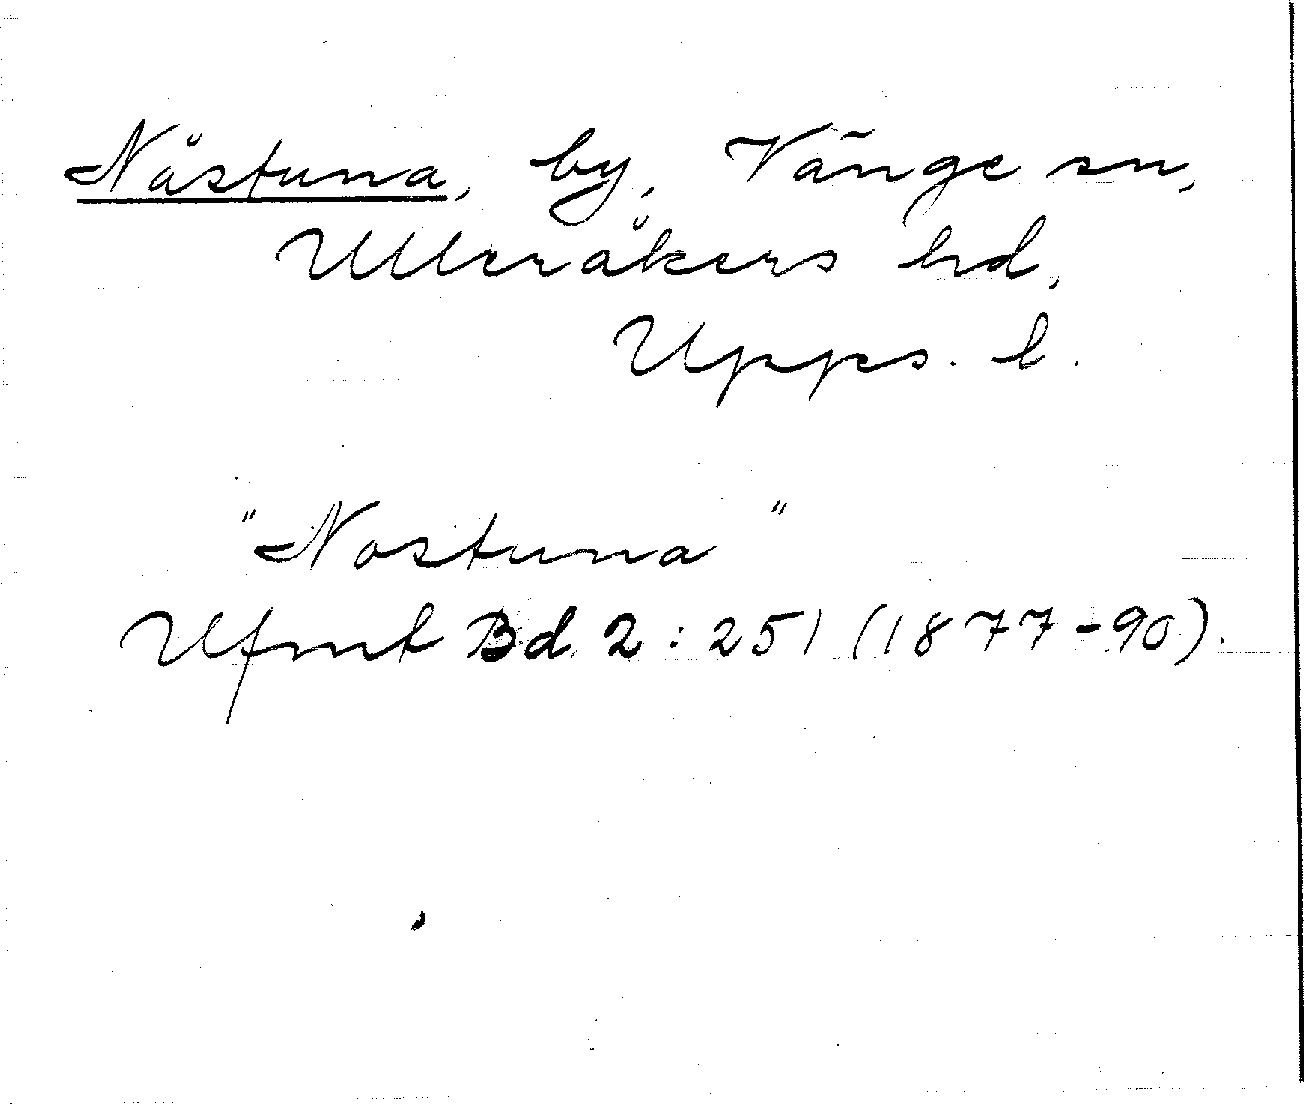 Nåstuna, by, Vänge sn,
Ulleråkers hd,
Upps. l.
"Nostuna"
Ufmt Bd 2:251 (1877-90).